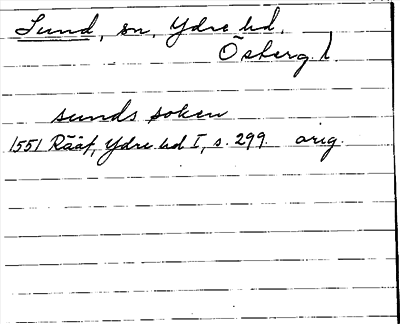 Sund, sn, Ydre hd.
Östberg l.
sunds soken
1551 Rääf, Ydre hd I, s. 299. orig.